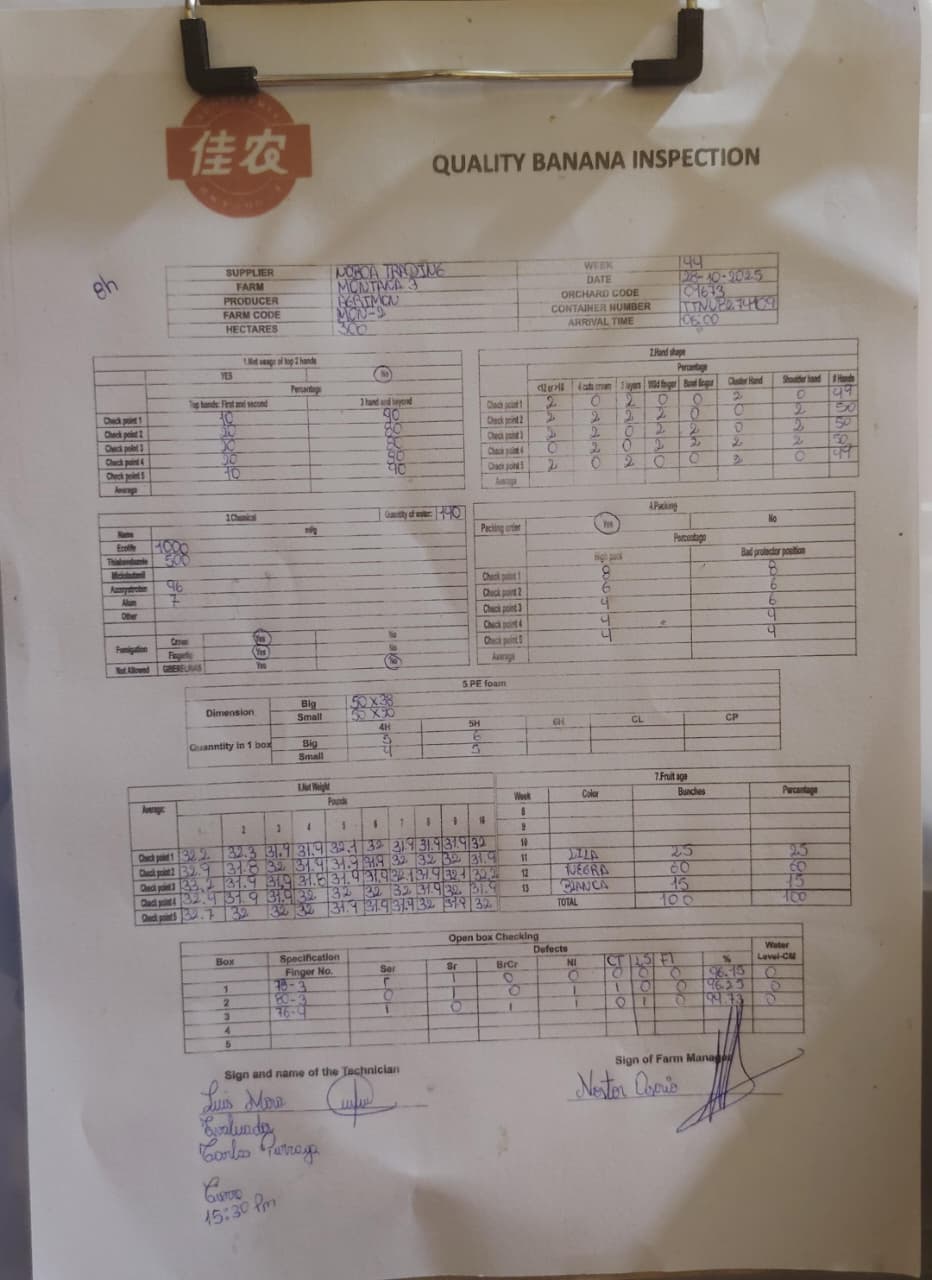 佳农
QUALITY BANANA INSPECTION
8h
SUPPLIER NOBOA TRADING WEEK 44
FARM MONTAÑA 3 DATE 28-10-2025
PRODUCER AGRIMON ORCHARD CODE 01673
FARM CODE MON-2 CONTAINER NUMBER
HECTARES 300 ARRIVAL TIME 06:00
1.Not usage of top 2 hands
YES No
Percentage
Top hands: First and second 3 hand and beyond
Check point 1 10 90
Check point 2 20 80
Check point 3 20 80
Check point 4 20 80
Check point 5 10 90
Average
2.Hand shape
Percentage
<12 or >18 4 cuts crown 3 layers Wild finger Bend finger Cluster Hand Shoulder hand # Hands
Check point 1 2 0 2 0 0 2 0 49
Check point 2 2 2 2 2 0 0 2 50
Check point 3 2 2 0 2 2 0 2 50
Check point 4 0 2 0 2 2 2 2 50
Check point 5 2 0 2 0 0 2 0 49
Average
3.Chemical Quantity of water: 140
Name
Ecolife 1000
Thiabendazole 500
Miclobutanil
Azoxystrobin 96
Alum 7
Other
Fumigation Crown Yes No
Fingertip Yes No
Not Allowed Yes No
4.Packing
Packing order Yes No
Percentage
High pack Bad protector position
Check point 1 8 8
Check point 2 6 6
Check point 3 4 6
Check point 4 4 4
Check point 5 4 4
Average
5.PE foam
Dimension Big 50 x 38
Small 50 x 30
4H 5H 6H CL CP
Quanntity in 1 box Big 5 6
Small 4 5
6.Net Weight
Average: Pounds
2 3 4 5 6 7 8 9 10
Check point 1 32.2 32.3 31.9 31.9 32.1 32 31.9 31.9 31.9 32
Check point 2 32.9 31.8 32 31.9 31.9 31.9 32 32 32 31.9
Check point 3 33.2 31.9 31.9 31.8 31.9 31.9 32.1 31.9 32.1 32.2
Check point 4 32.4 31.9 31.9 32 32 32 32 31.9 32 31.9
Check point 5 32.7 32 32 32 31.9 31.9 31.9 32 31.9 32
7.Fruit age
Week Color Bunches Percentage
8
9
10
11 LILA 25 25
12 NEGRA 60 60
13 BLANCA 15 15
TOTAL 100 100
Open box Checking
Box Specification Defects Water
Finger No. Ser Sr BrCr NI CT LS FI % Level-CM
1 78-3 1 0 0 0 0 0 96.15 0
2 80-3 0 1 0 1 1 0 0 96.25 0
3 76-4 1 0 1 1 0 1 0 94.73 0
4
5
Sign and name of the Technician
Sign of Farm Manager
Luis Mora
Nestor Osorio
Evaluada
Carlos
Cierro
15:30 Pm